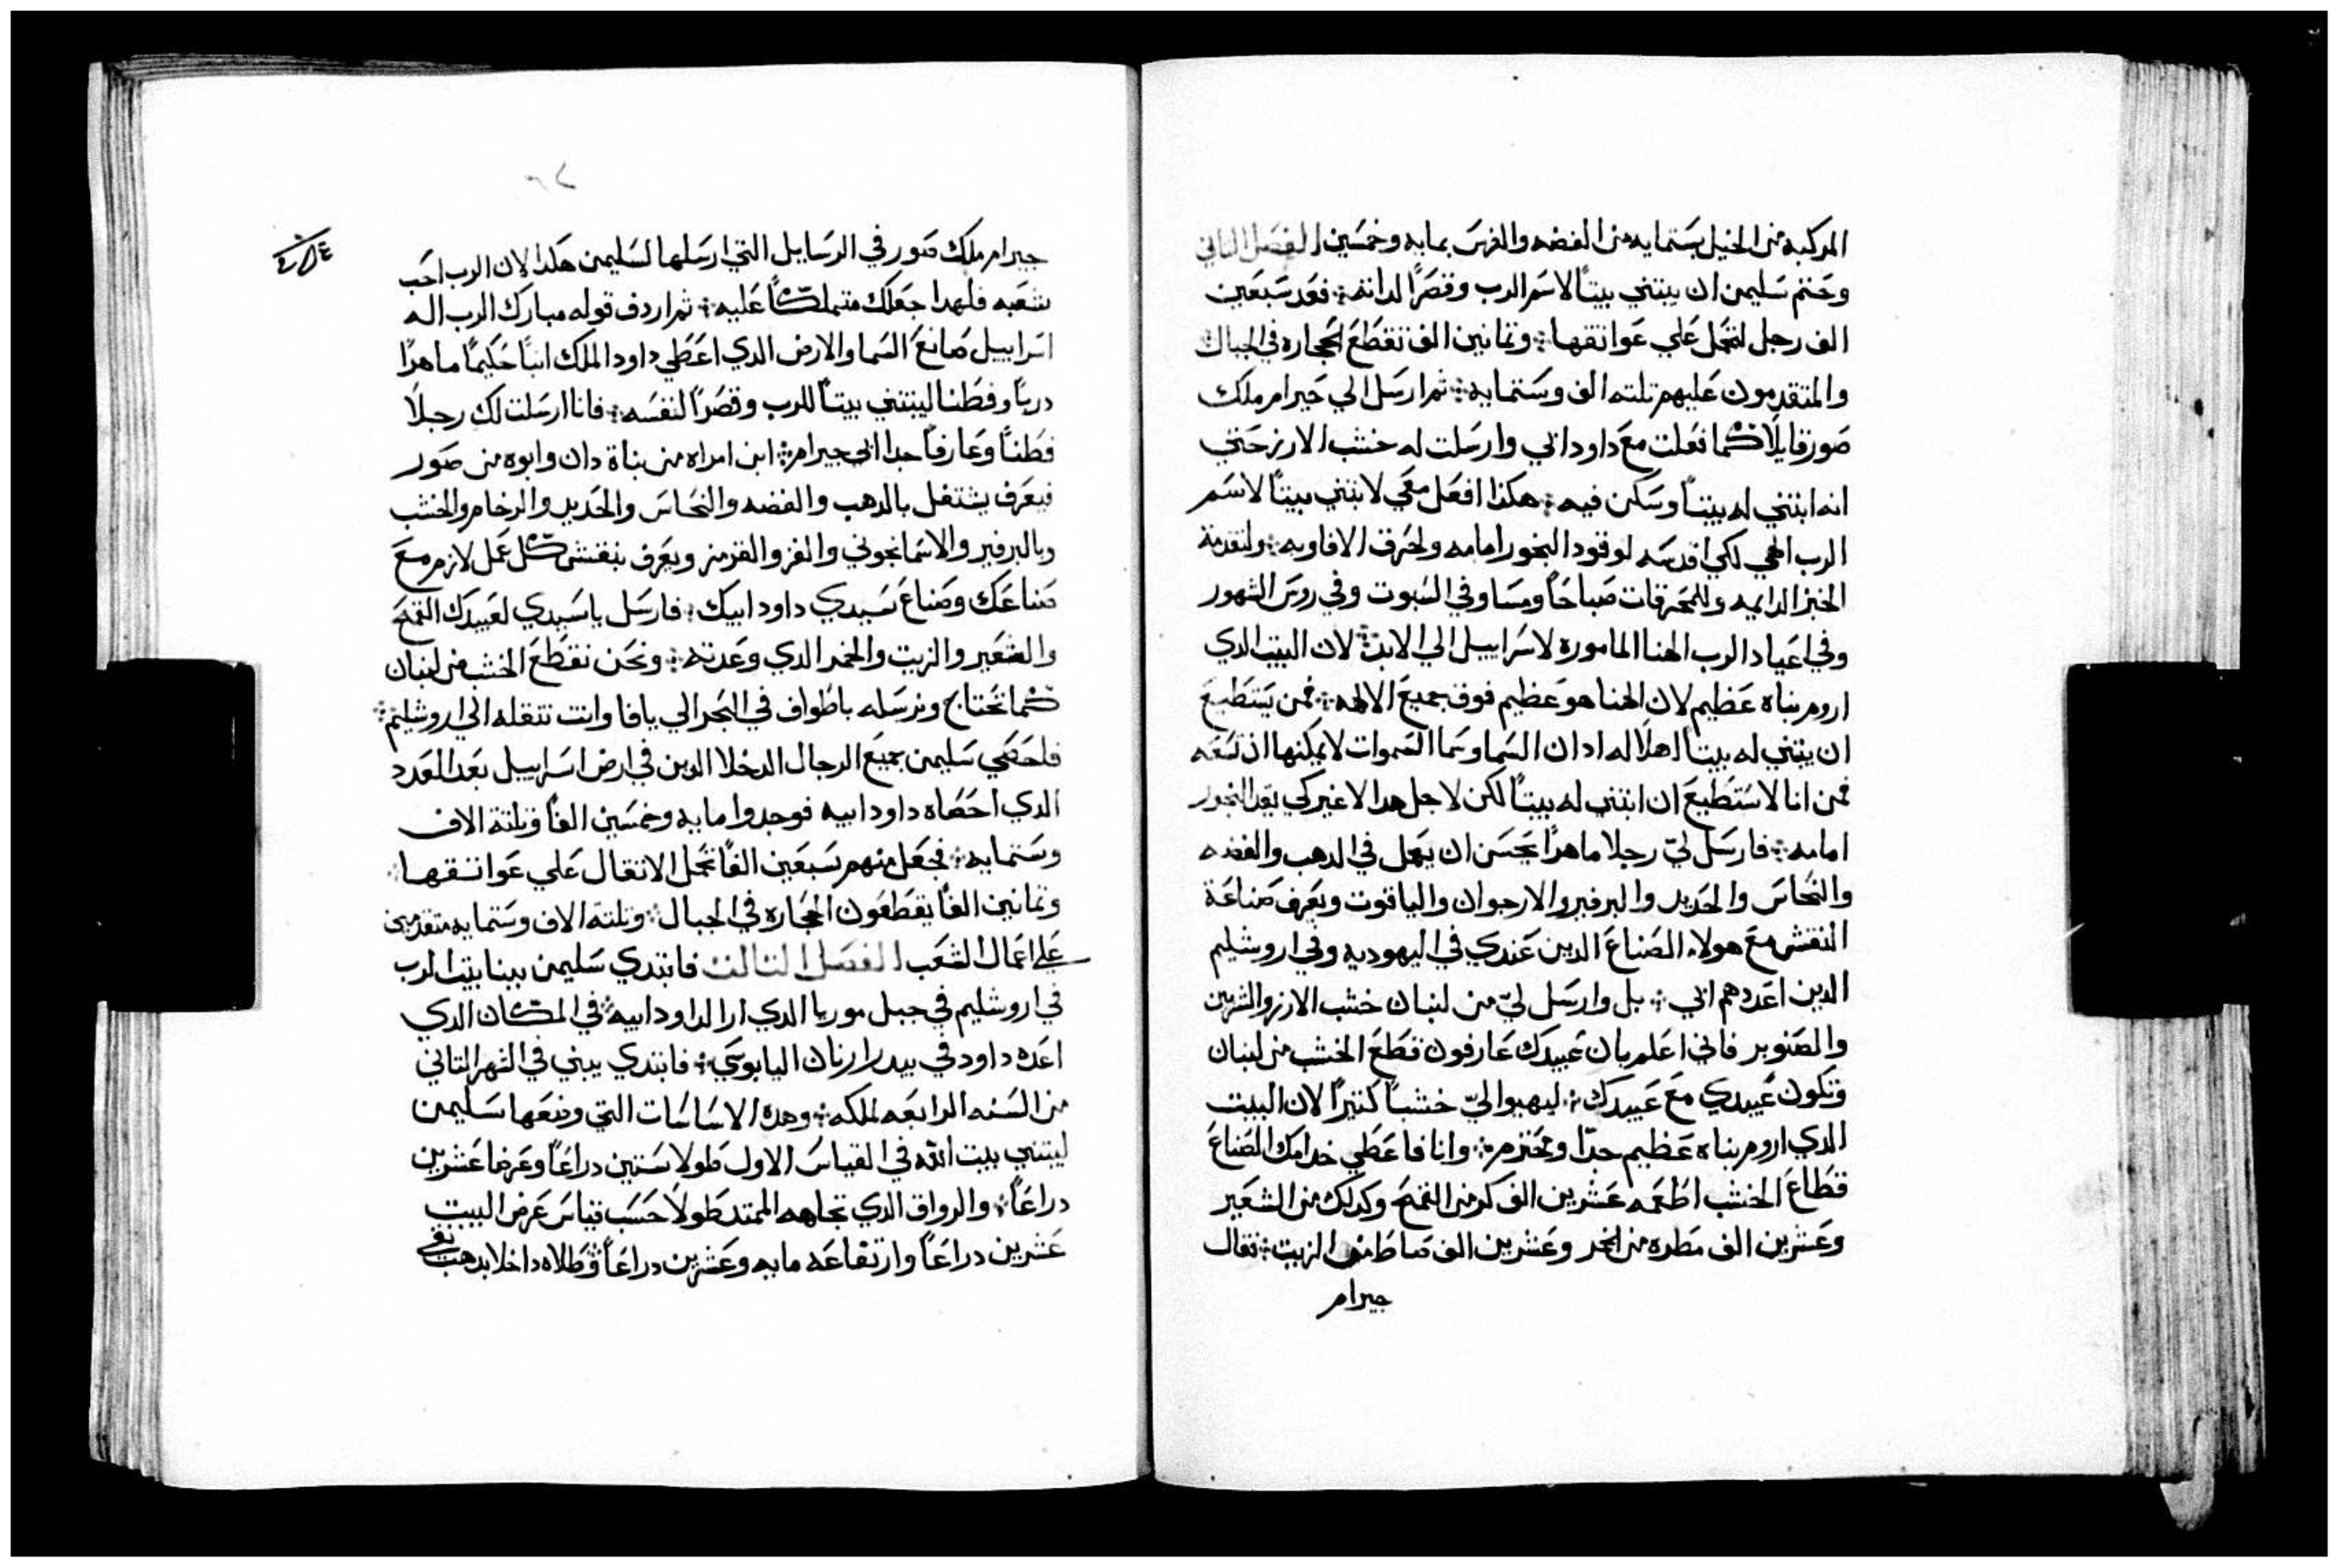 المركبه من الخيل بستمايه من الفضه والفرس بمايه وخمسين الفصل الثاني
وختم سليمن ان يبتني بيتاً لاسم الرب وقصراً لداته فعد سبعين
الف رجل لتحمل علي عواتقها وتمانين الف تقطع الحجاره في الجبال
والمتقدمون عليهم تلته الف وستمايه ثم ارسل الي حيرام ملك
صور قايلاً كما فعلت مع داود ابي وارسلت له خشب الارز حتي
انه ابتني له بيتاً وسكن فيه هكذا افعل معي لابتني بيتاً لاسم
الرب الهي لكي اقدسه لوقود البخور امامه ولحرق الافاويه ولتقدمة
الخبز الدايمه وللمحرقات صباحاً ومسا وفي السبوت وفي روس الشهور
وفي اعياد الرب الهنا الماموره لاسراييل الي الابد لان البيت الدي
اروم بناه عظيم لان الهنا هو عظيم فوق جميع الالهه فمن يستطيع
ان يبتني له بيتاً اهلاً له ادا ن السما وسما السموات لا يمكنها ان تسعه
فمن انا لاستطيع ان ابتني له بيتاً لكن لاجل هدا لا غير كي يقد البخور
امامه فارسل ليّ رجلا ماهراً يحسن ان يعمل في الدهب والفضه
والنحاس والحديد والبرفير والارجوان والياقوت ويعرف صناعة
النقش مع هولاء الصناع الدين عندي في اليهوديه وفي اروشليم
الدين اعددهم ابي بل وارسل ليّ من لبنان خشب الارز والشربين
والصنوبر فاني اعلم بان عبيدك عارفون قطع الخشب من لبنان
وتكون عبيدي مع عبيدك ليهيوا ليّ خشباً كتيراً لان البيت
الدي اروم بناه عظيم جداً ومحتزم وانا فاعطي خدامك الصناع
قطاع الخشب اطعمه عشرين الف كر من القمح وكدلك من الشعير
وعشرين الف مطره من الخمر وعشرين الف صاطا من الزيت فقال
جيرام
جيرام ملك صور في الرسايل التي ارسلها لسليمن هكدا لان الرب احب
شعبه فلهدا جعلك متملكاً عليه ثم اردف قوله مبارك الرب اله
اسراييل صانع السما والارض الدي اعطي داود الملك ابناً حكيماً ماهراً
درباً وفطنا ليبتني بيتاً للرب وقصراً لنفسه فانا ارسلت لك رجلاً
فطناً وعارفاً جدا ابي جيرام ابن امراه من بناة دان وابوه من صور
فيعرف يشتغل بالدهب والفضه والنحاس والحديد والرخام والخشب
وبالبرفير والاسمانجوني والقز والقرمز ويعرف ينقش كل عمل لازم مع
صناعك وصناع سيدي داود ابيك فارسل يا سيدي لعبيدك القمح
والشعير والزيت والخمر الدي وعدته ونحن نقطع الخشب من لبنان
كما تحتاج ونرسله باطواف في البحر الي يافا وانت تنقله الي اروشليم
فاحصي سليمن جميع الرجال الدخلا الدين في ارض اسراييل بعد العدد
الدي احصاه داود ابيه فوجدوا مايه وخمسين الفاً وتلتة الاف
وستمايه فجعل منهم سبعين الفاً تحمل الاتقال علي عواتقها
وتمانين الفاً يقطعون الحجاره في الجبال وتلتة الاف وستمايه متقدمين
علي اعمال الشعب الفصل التالت فابتدي سليمن ببنا بيت الرب
في اروشليم في جبل موريا الدي ارا لداود ابيه في المكان الدي
اعده داود في بيدر ارنان اليابوسي فابتدي يبني في الشهر التاني
من السنه الرابعه لملكه وهده الاساسات التي وضعها سليمن
ليبتني بيت الله في القياس الاول طولا ستين دراعاً وعرضا عشرين
دراعاً والرواق الدي تجاهه الممتد طولاً حسب قياس عرض البيت
عشرين دراعاً وارتفاعه مايه وعشرين دراعاً وطلاه داخلا بدهب نقي